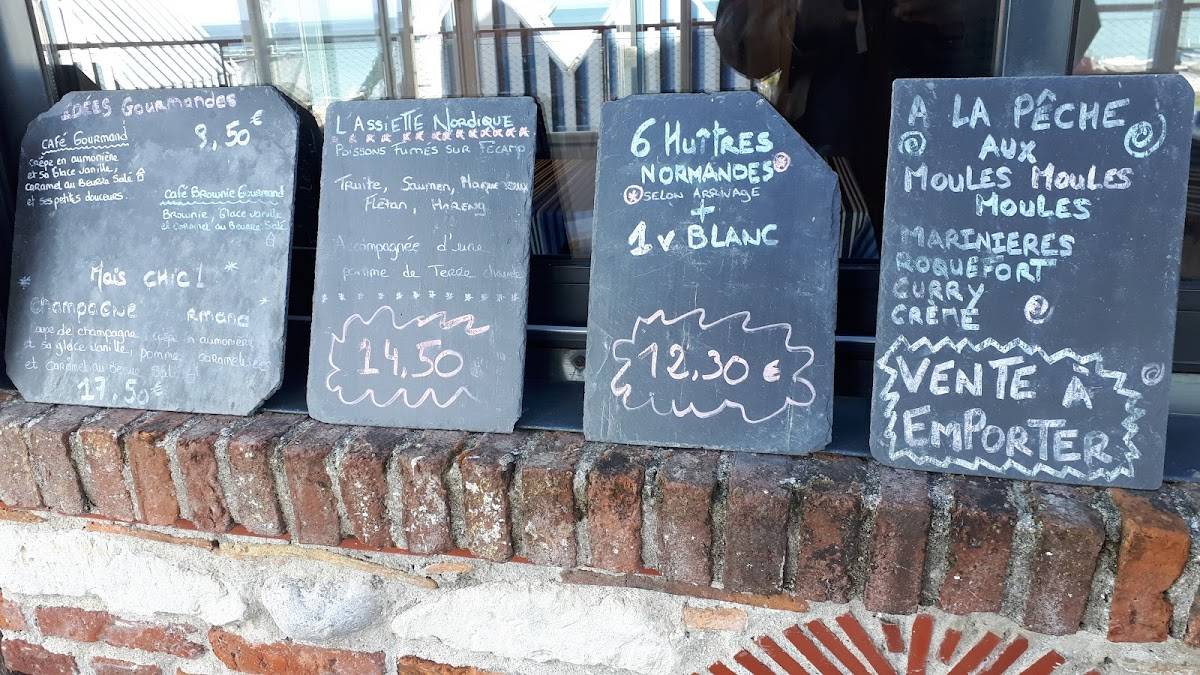 IDÉES GOURMANDES
CAFÉ GOURMAND
8,50 €
CRÊPE EN AUMONIÈRE
ET SA GLACE VANILLE,
CARAMEL AU BEURRE SALÉ
ET SES PETITS DOUCEURS.
CAFÉ BROWNIE GOURMAND
BROWNIE, GLACE VANILLE
ET CARAMEL AU BEURRE SALÉ
MAIS CHIC !
CHAMPAGNE RMAND
DE CHAMPAGNE CRÊPE EN AUMONIÈRE
ET SA GLACE VANILLE, POMME CARAMELISÉE
ET CARAMEL AU BEURRE SALÉ
17,50 €
L'ASSIETTE NORDIQUE
POISSONS FUMÉS SUR FÉCAMP
TRUITE, SAUMON, MAQUEREAUX
FLÉTAN, HARENG
ACCOMPAGNÉE D'UNE
POMME DE TERRE CHAUDE
14,50
6 HUÎTRES
NORMANDES
SELON ARRIVAGE
+
1 V BLANC
12,30 €
A LA PÊCHE
AUX
MOULES MOULES
MOULES
MARINIERES
ROQUEFORT
CURRY
CRÉMÉ
VENTE À
EMPORTER